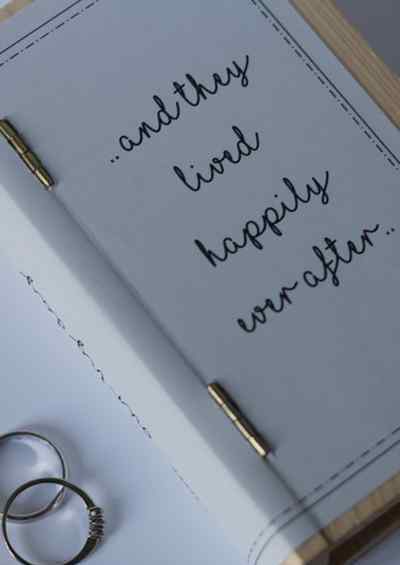 ..and they
lived
happily
ever after..